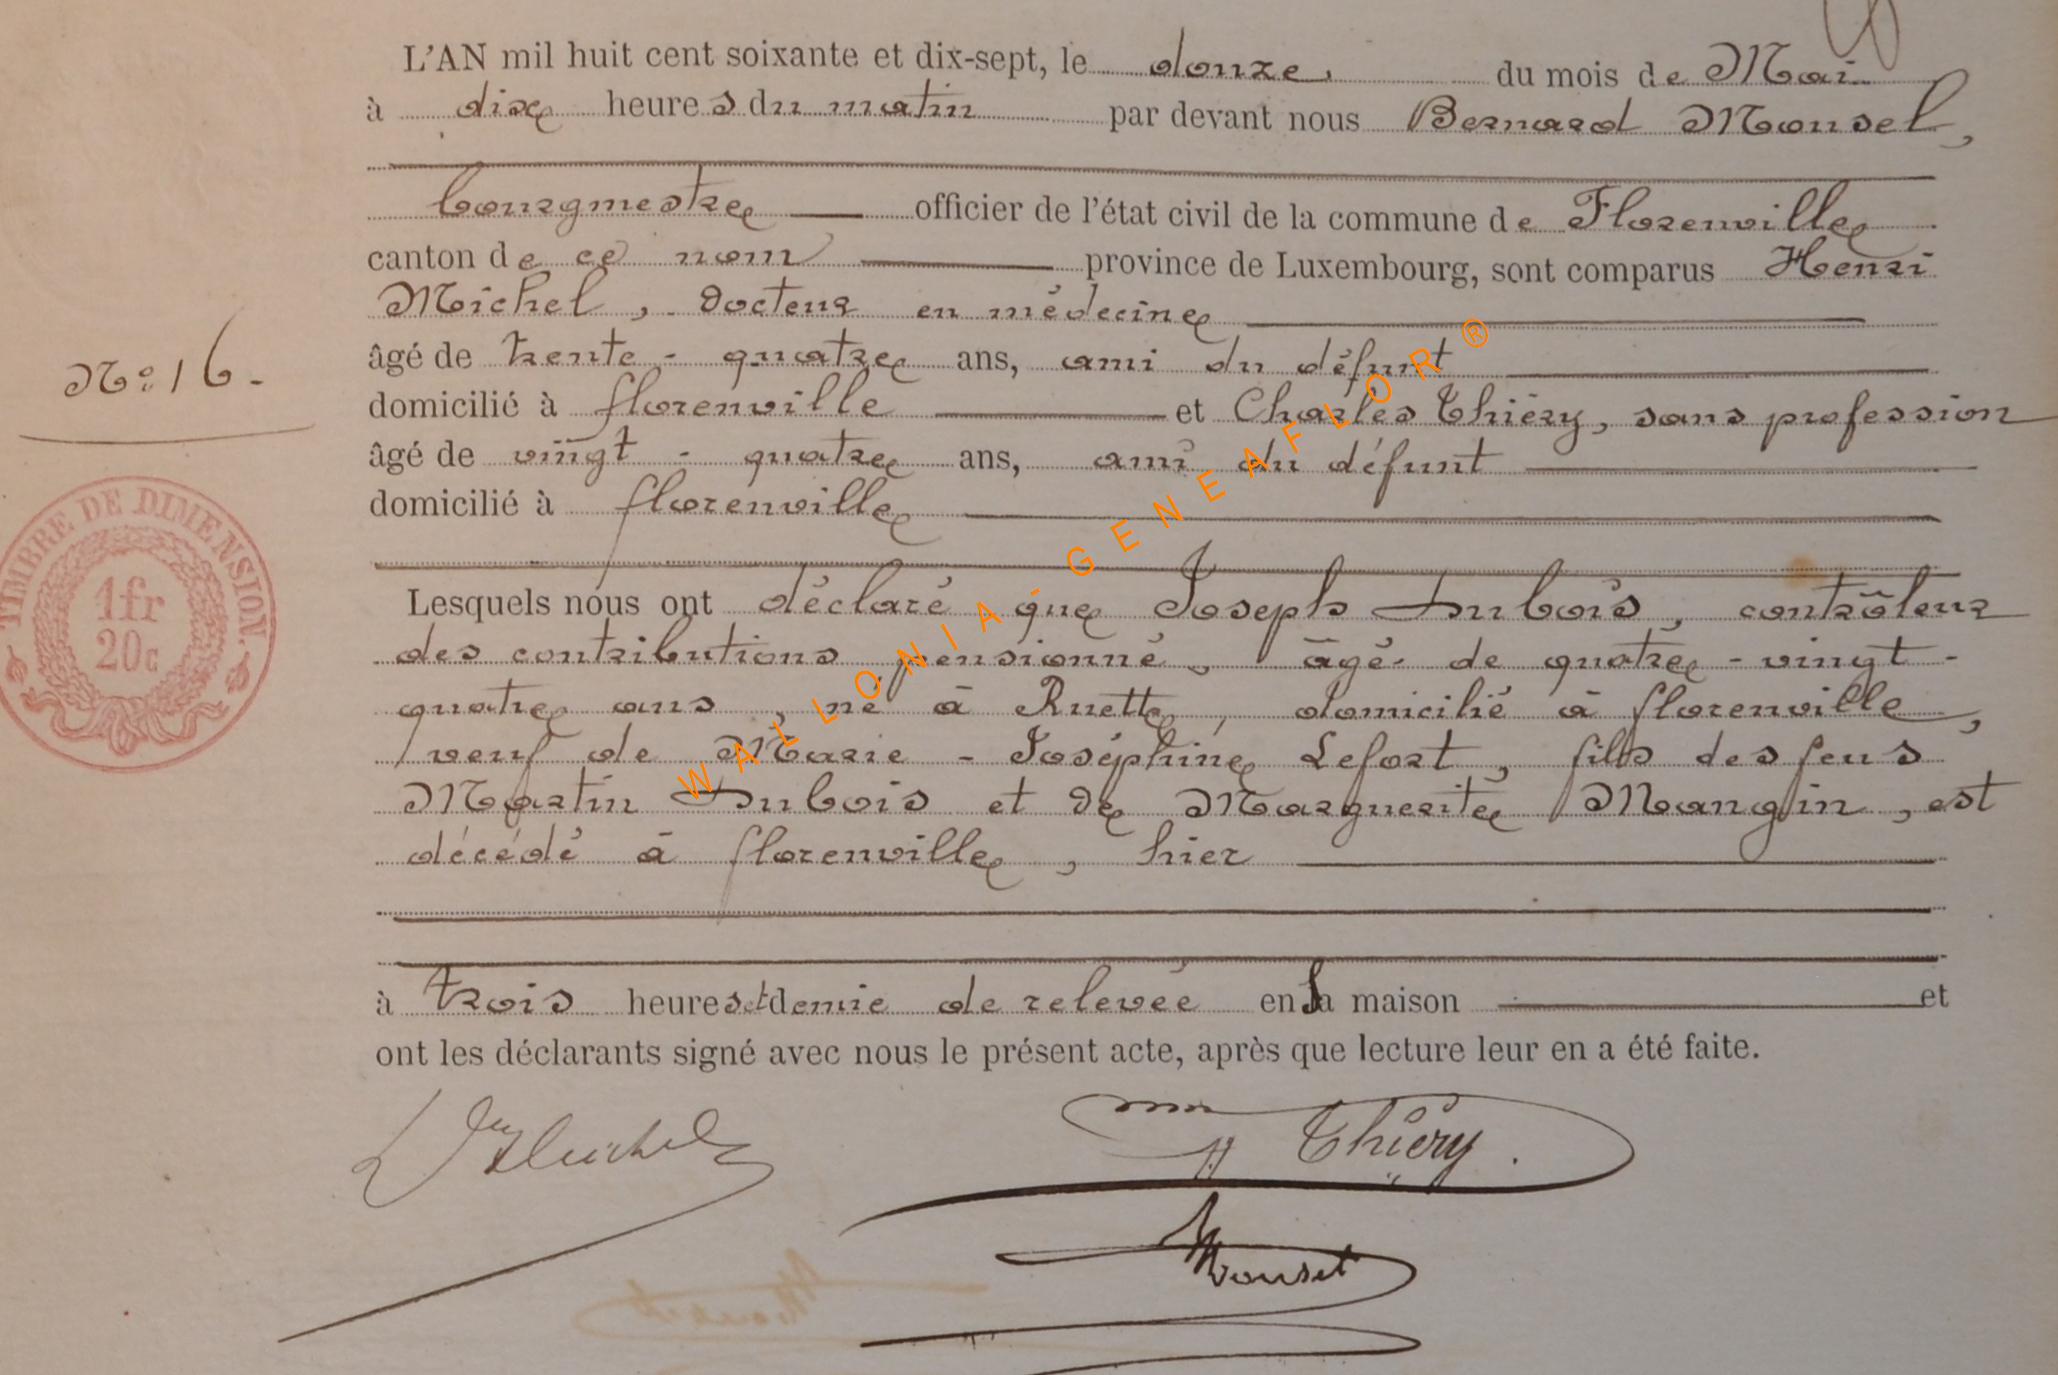 L'AN mil huit cent soixante et dix-sept, le douze, du mois de Mai
à dix heures du matin par devant nous Bernard Monsel,
bourgmestre officier de l'état civil de la commune de Florenville
canton de ce nom province de Luxembourg, sont comparus Henri
Michel, docteur en médecine
âgé de trente-quatre ans, ami du défunt
N° 16.
domicilié à florenville et Charles Thiéry, sans profession
âgé de vingt-quatre ans, ami du défunt
domicilié à florenville
TIMBRE DE DIMENSION.
1fr
20c
Lesquels nous ont déclaré que Joseph Dubois, contrôleur
des contributions pensionné, âgé de quatre-vingt-
quatre ans, né à Ruette, domicilié à florenville,
veuf de Marie-Joséphine Lefort, fils des feus
Martin Dubois et de Marguerite Mangin, est
décédé à florenville, hier
à trois heures et demie de relevée en sa maison et
ont les déclarants signé avec nous le présent acte, après que lecture leur en a été faite.
Dr Michel
Thiéry.
Monsel
WALLONIA-GENEAFLOR®